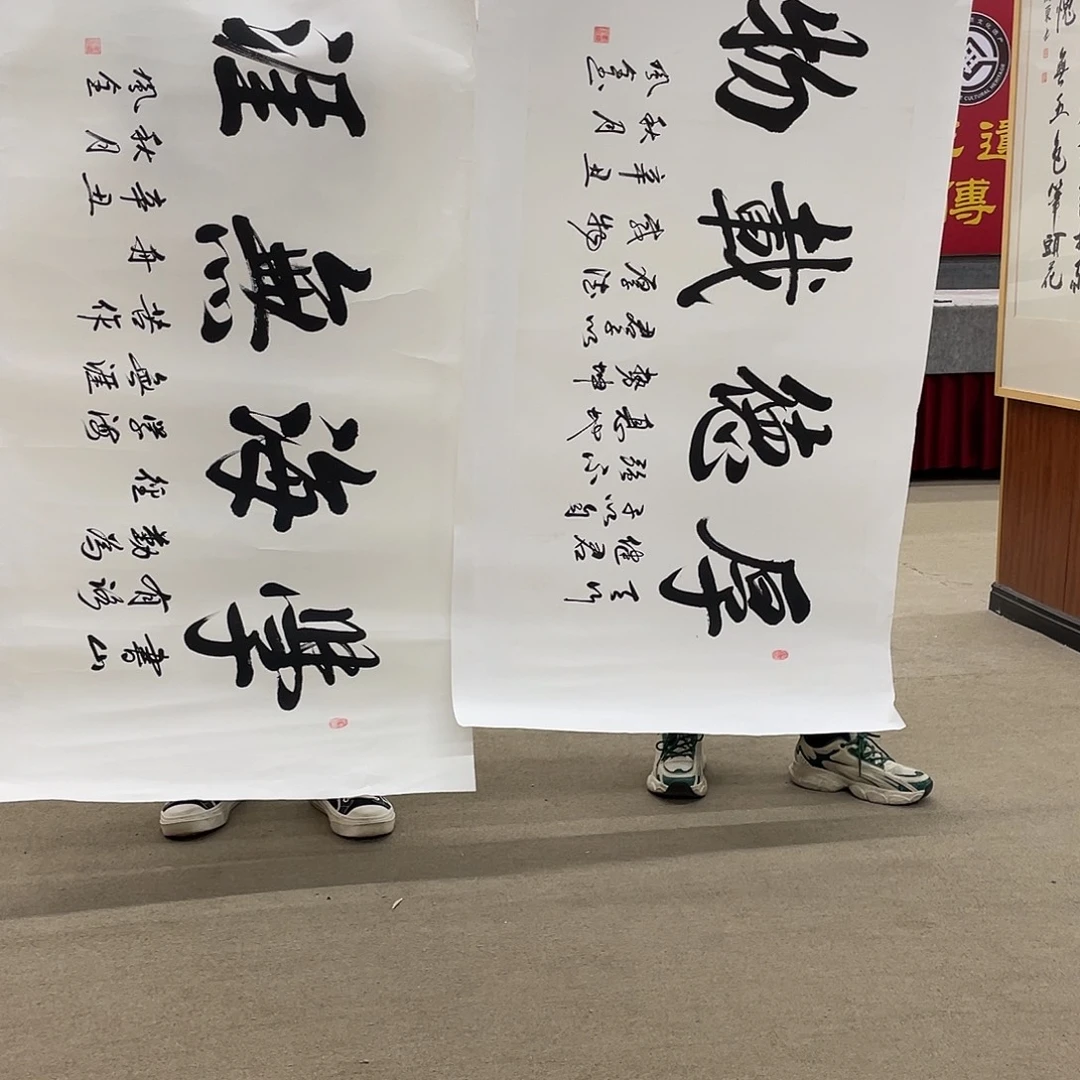 學海無涯
書山
有路
勤為
徑
學海
無涯
苦作
舟
辛丑
秋月
厚德載物
天行
健君
子以自
強不
息地
勢坤
君子以
厚德
載物
辛丑
秋月
CULTURAL HERITAGE
遺
傳
愧無五色筆頭花